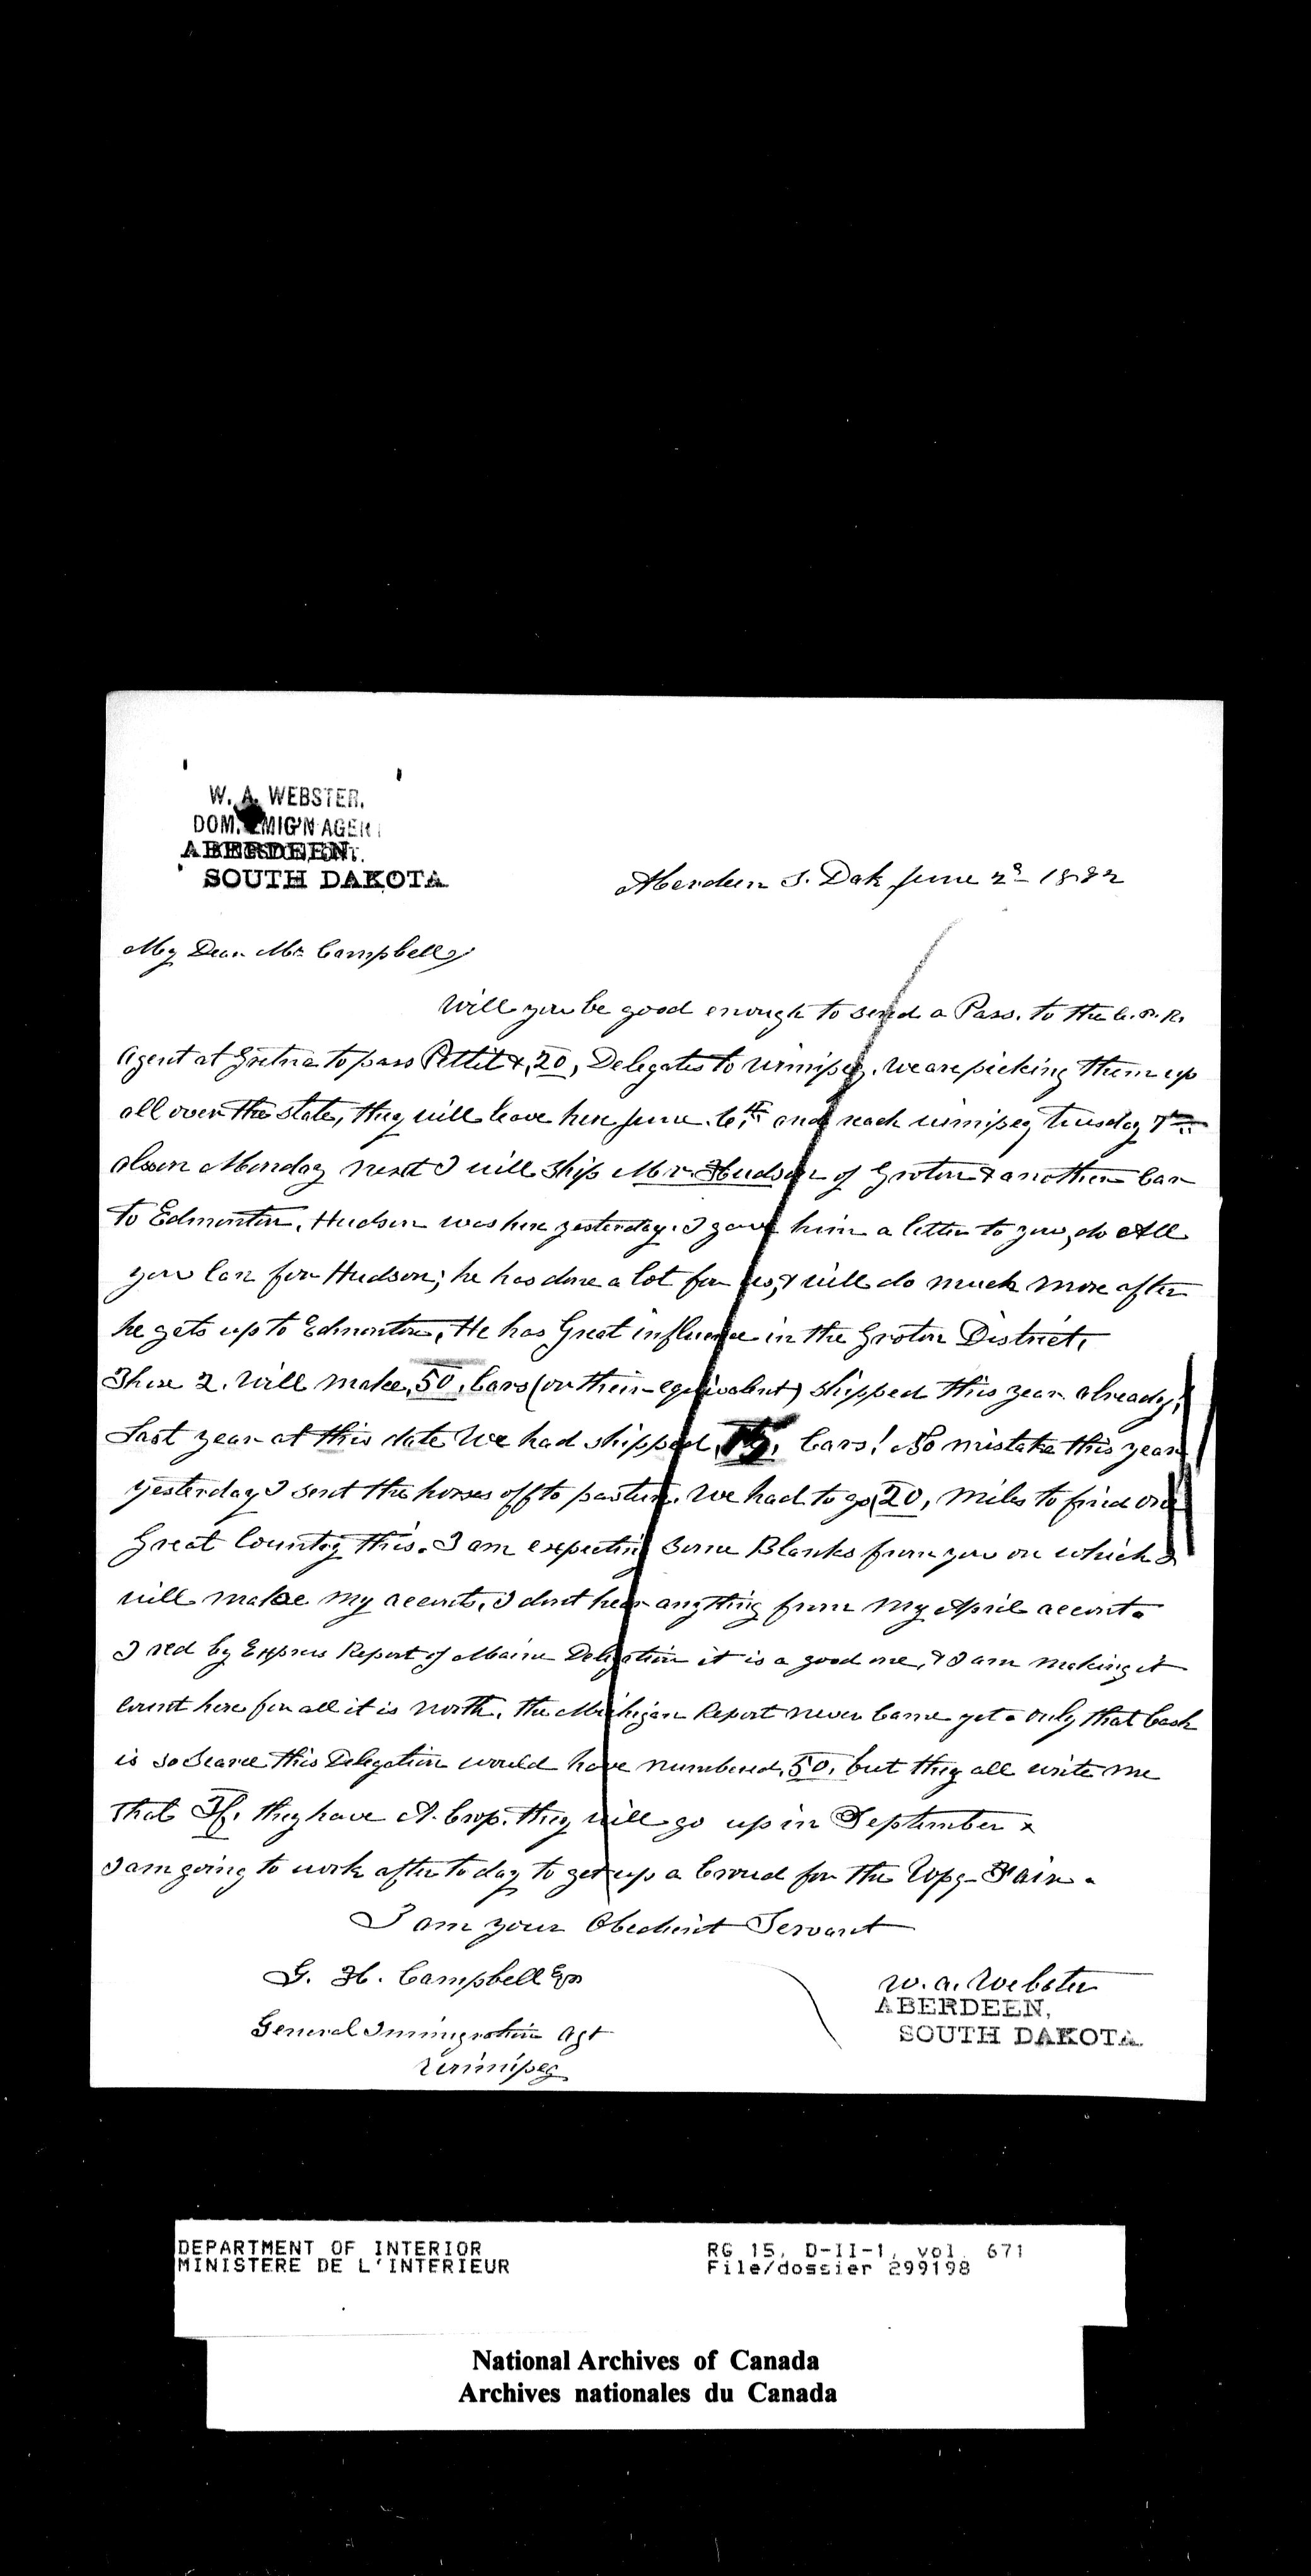 W. A. WEBSTER.
DOM. EMIG'N AGENT
ABERDEEN,
SOUTH DAKOTA
Aberdeen S. Dak June 2d 1892
My Dear Mr. Campbell,
Will you be good enough to send a Pass. to the C.P.R.
Agent at Gretna to pass Pettit & 20, Delegates to Winnipeg. we are picking them up
all over the State, they will leave here June 6th, and reach winnipeg tuesday 7th
Monday next I will ship Mr. Hudson of Groton & another Car
To Edmonton, Hudson was here yesterday. I gave him a letter to you, do All
you Can for Hudson; he has done a lot for us, & will do much more after
he gets up to Edmonton, He has Great influence in the Groton District,
These 2. Will make, 50, Cars (or their equivalent) shipped this year already!
Last year at this date We had shipped, Cars! No mistake this year
yesterday I sent the horses off to pasture. We had to go, 20, miles to find one
Great Country this. I am expecting some Blanks from you on which I
will make my accounts, I dont hear anything from My April account.
I recd by Express Report of Maine Delegation it is a good one, & I am making it
count here for all it is worth. the Michigan Report never Came yet. Only that Cash
is so Scarce this Delegation would have numbered, 50, but they all write me
That If, they have A. Crop. they will go up in September &
I am going to work after to day to get up a Crowd for the Wpg Fair.
I am your Obedient Servant
G. H. Campbell Esq
W. A. Webster
ABERDEEN,
SOUTH DAKOTA
General Immigration Agt
Winnipeg
DEPARTMENT OF INTERIOR
MINISTERE DE L'INTERIEUR
RG 15, D-II-1, vol. 671
File/dossier 299198
National Archives of Canada
Archives nationales du Canada